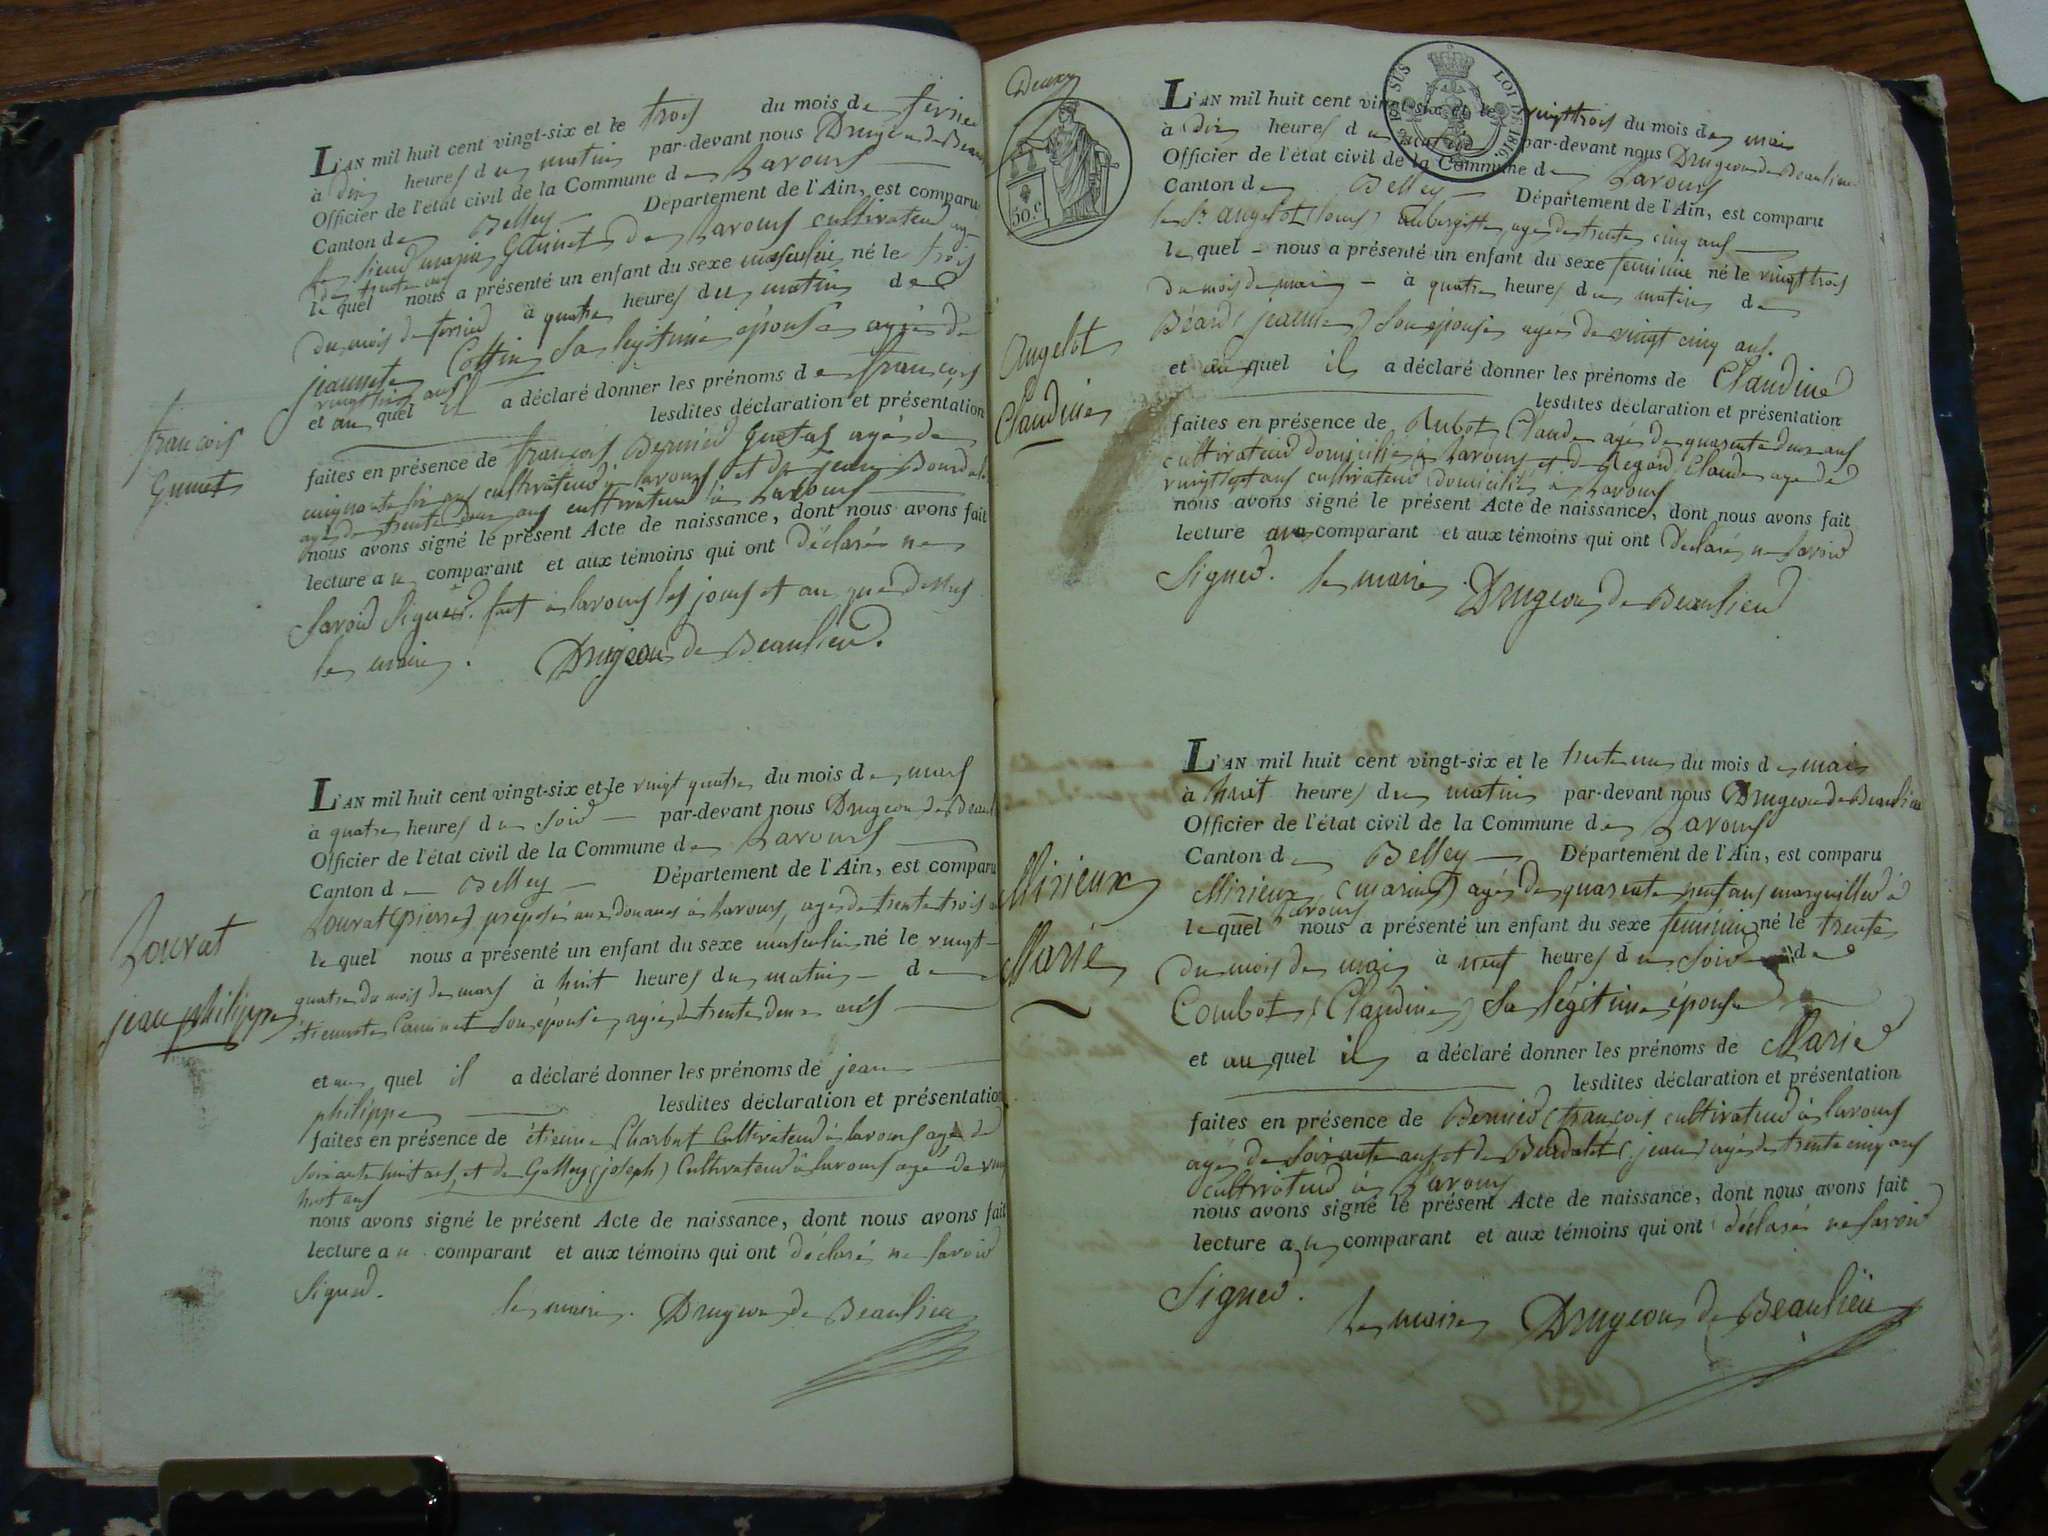 L'AN mil huit cent vingt-six et le trois du mois de février
à dix heures du matin par-devant nous Drugeon de Beau
Officier de l'état civil de la Commune de Lavours
Canton de Belley Département de l'Ain, est comparu
le sieur Guinet de Lavours cultivateur
le quel nous a présenté un enfant du sexe masculin né le trois
du mois de février à quatre heures du matin de
jeannette Cottin sa légitime épouse agée de
et au quel il a déclaré donner les prénoms de françois
lesdites déclaration et présentation
françois
Guinet
faites en présence de françois Bernier agé de
cinquante six ans cultivateur à lavours et de jean Bourdat
agé de trente deux ans cultivateur à Lavours
nous avons signé le présent Acte de naissance, dont nous avons fait
lecture au comparant et aux témoins qui ont déclaré ne
savoir signer. fait à lavours les jours et an que dessus
le maire. Drugeon de Beaulieu.
L'AN mil huit cent vingt-six et le vingt quatre du mois de mars
à quatre heures du soir par-devant nous Drugeon de Beaul
Officier de l'état civil de la Commune de Lavours
Canton de Belley Département de l'Ain, est comparu
Louvat (pierre) préposé aux douanes à Lavours, agé de trente trois
Louvat
jean philippe
le quel nous a présenté un enfant du sexe masculin né le vingt
quatre du mois de mars à huit heures du matin de
étiennette Caminet son épouse, agée de trente deux ans
et au quel il a déclaré donner les prénoms de jean
philippe lesdites déclaration et présentation
faites en présence de étienne Charbet cultivateur à lavours agé de
soixante huit ans, et de Galley (joseph) cultivateur à lavours agé de
huit ans
nous avons signé le présent Acte de naissance, dont nous avons fait
lecture au comparant et aux témoins qui ont déclaré ne savoir
signer.
le maire. Drugeon de Beaulieu
Deux
50.c
LOI DE 1816
L'AN mil huit cent vingt-six et le vingt trois du mois de mai
à dix heures du matin par-devant nous Drugeon de Beaulieu
Officier de l'état civil de la Commune de Lavours
Canton de Belley Département de l'Ain, est comparu
le Sr angelot (louis) aubergiste, agé de trente cinq ans
le quel nous a présenté un enfant du sexe feminin né le vingt trois
du mois de mai à quatre heures du matin de
Béard (jeanne) son épouse agée de vingt cinq ans.
Angelot
Claudine
et au quel il a déclaré donner les prénoms de Claudine
lesdites déclaration et présentation
faites en présence de Rubot Claude agé de quarante deux ans
cultivateur domicilié à Lavours et de Regard Claude agé de
vingt sept ans cultivateur domicilié à Lavours
nous avons signé le présent Acte de naissance, dont nous avons fait
lecture au comparant et aux témoins qui ont déclaré ne savoir
signer. le maire Drugeon de Beaulieu
L'AN mil huit cent vingt-six et le trente un du mois de mai
à huit heures du matin par-devant nous Drugeon de Beaulieu
Officier de l'état civil de la Commune de Lavours
Canton de Belley Département de l'Ain, est comparu
Mirieux (marin) agé de quarante neuf ans marguiller à
Lavours
Mirieux
Marie
le quel nous a présenté un enfant du sexe feminin né le trente
du mois de mai à neuf heures du soir de
Combot (Claudine) sa légitime épouse
et au quel il a déclaré donner les prénoms de Marie
lesdites déclaration et présentation
faites en présence de Bernier (françois cultivateur à lavours
agé de soixante ans et de Burdatet (jean) agé de trente cinq ans
cultivateur à Lavours
nous avons signé le présent Acte de naissance, dont nous avons fait
lecture au comparant et aux témoins qui ont déclaré ne savoir
signer.
Le maire Drugeon de Beaulieu